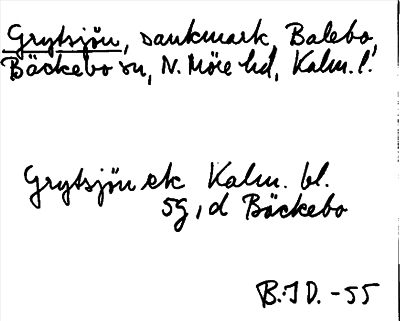 Grytsjön, sankmark, Balebo,
Bäckebo sn, N. Möre hd, Kalm. l.
Grytsjön ek Kalm. bl.
5g, d Bäckebo
B.ID. -55